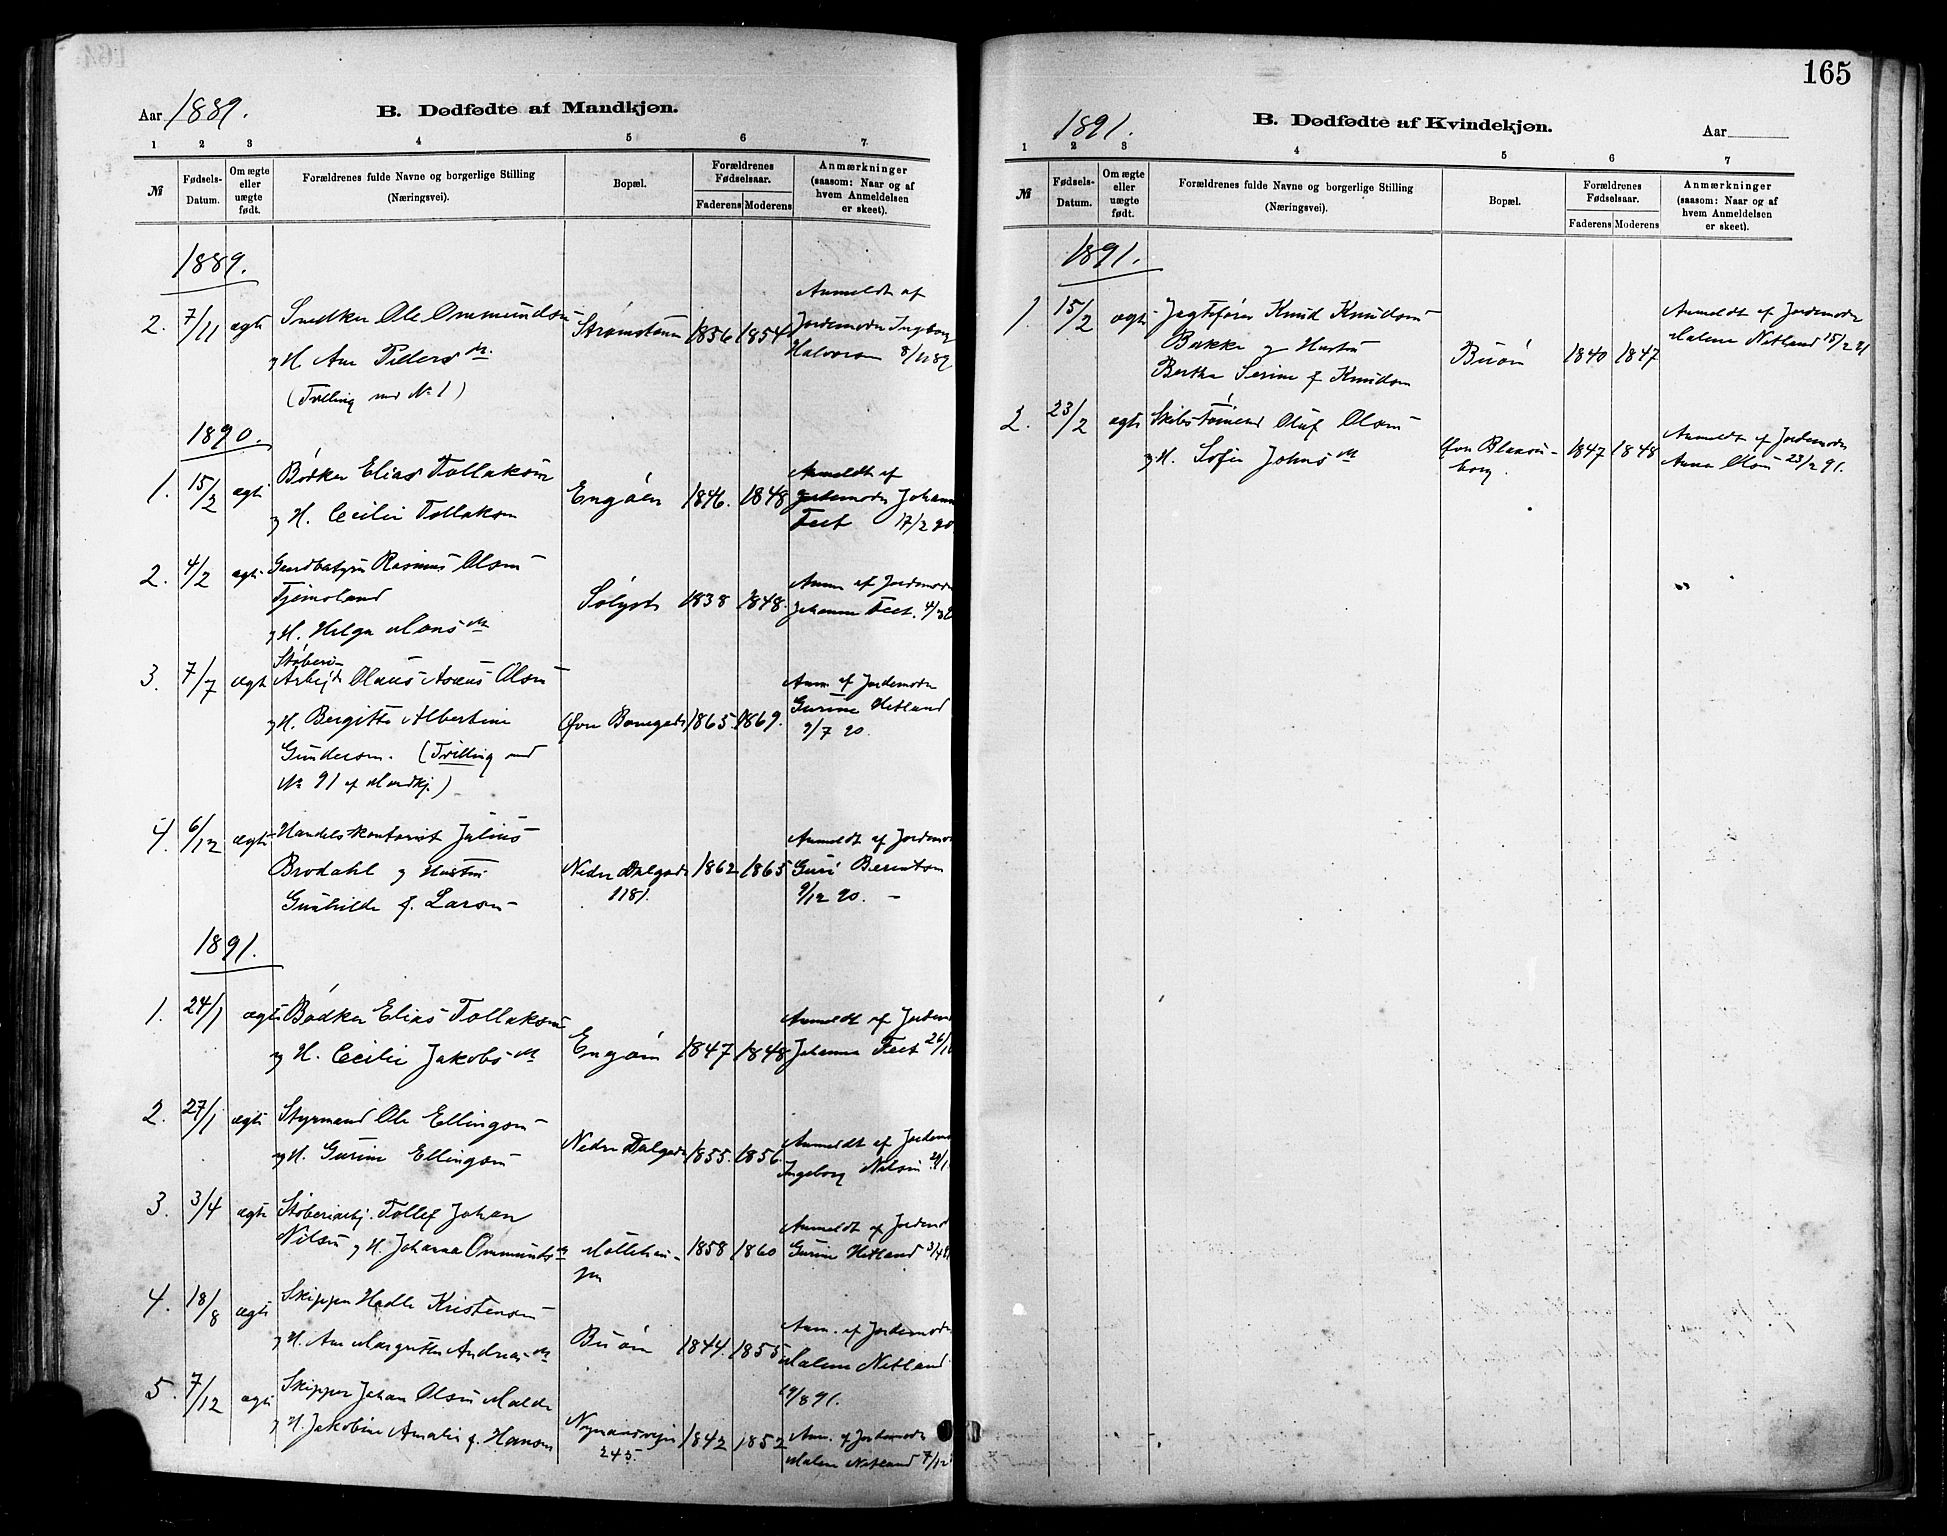 Aar 1889.
B. Dødfødte af Mandkjøn.
1 2 3 4 5 6 7
№
Fødsels-Datum.
Om ægte eller uægte født.
Forældrenes fulde Navne og borgerlige Stilling
(Næringsvei).
Bopæl.
Forældrenes Fødselsaar.
Faderens Moderens
Anmærkninger
(saasom: Naar og af
hvem Anmeldelsen
er skeet).
1889.
2. 7/11 ægte Snedker Ole Ommundsen Strømstenen 1856 1854 Anmeldt af
Jordemoder Ingeborg
og H. Ane Peders D.
Halvorsen 8/11 89
(Tvilling med No 1)
1890.
1. 15/2 ægte Bødker Elias Tollaksen Engøen 1846. 1848 Anmeldt af
og H. Cecilie Tollaksen
Jordemoder Johanna
Feet 17/2 90
2. 4/2 ægte Rasmus Olsen
Tjemsland Sølvgd 1838 1848. Anm af Jordemoder
og H. Helga Mons D.
Johanna Feet.
3. 7/7 ægte Støberi-
Arbejd. Olaus Olsen
Anm. af Jordemoder
og H. Bergitte Albertine Øvre Banegade 1865 1869. Gurine Hetland
Gundersen. (Tvilling med
9/7 90.
No 91 af Mandkj.)
4. 6/12 ægte Handelskontorist Julius
Anmeldt af Jordemoder
Brodahl og Hustru Nedre Dalgade 1862 1865 Guri Berentsen
1181.
9/12 90.
Gunhilde f. Larsen
1891.
1. 24/1 ægte Bødker Elias Tollaksen
Anmeldt af Jordemoder
og H. Cecilie Jakobs D. Engøen 1847 1848 Johanna Feet 26/1
2. 27/1 ægte Styrmand Ole Ellingsen
og H. Gurine Ellingsen Nedre Dalgade 1855. 1856. Anmeldt af Jordemoder
Ingeborg Nilsen
3. 3/4 ægte Støberiarbj. Tollef Johan
Anmeldt af Jordemoder
Nilsen og H. Johanna Ommunds D. 1858 1860 Gurine Hetland 3/4 91
4. 18/8 ægte Skipper Hadle Kristensen
og H. Ane Margrethe Andreas D. Buøen 1844. 1855 Anm. af Jordemoder
Malene Netland
19/8 91.
5. 7/12 ægte Skipper Johan Olsen Malde
og H. Jakobine Amalie f. Hansen 245. 1842 1852 Anm. af Jordemoder
Malene Netland 7/12
165
1891.
B. Dødfødte af Kvindekjøn.
Aar
1 2 3 4 5 6 7
№
Fødsels-Datum.
Om ægte eller uægte født.
Forældrenes fulde Navne og borgerlige Stilling
(Næringsvei).
Bopæl.
Forældrenes Fødselsaar.
Faderens Moderens
Anmærkninger
(saasom: Naar og af
hvem Anmeldelsen
er skeet).
1891.
1 15/2 ægte Jagtefører Knud Knudsen
Anmeldt af Jordemoder
Bakke og Hustru Buøen 1840 1847 Malene Netland 15/2 91
Bertha Serine f. Knudsen
2. 23/2 ægte Skibstømmermand Oluf Olsen
og H. Sofie Johns D. Øvre Blaasenborg 1847 1848 Anmeldt af Jordemoder
Anna Olsen 23/2 91.